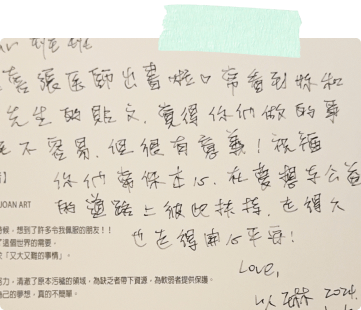 喜張医師出書啦♡常看到妳和
先生的貼文,覺得你們做的事
不容易,但很有意義!祝福
你們常保 心,在夢想与公益
UOAN ART
的道路上彼此扶持,走得久
時候,想到了許多令我佩服的朋友!!
了這個世界的需要,
「又大又難的事情」。
也走得開心平安!
努力,清邇了原本污穢的領域,為缺乏者帶下資源,為軟弱者提供保護。
自己的夢想,真的不簡單。
Love,
以琳 2024.